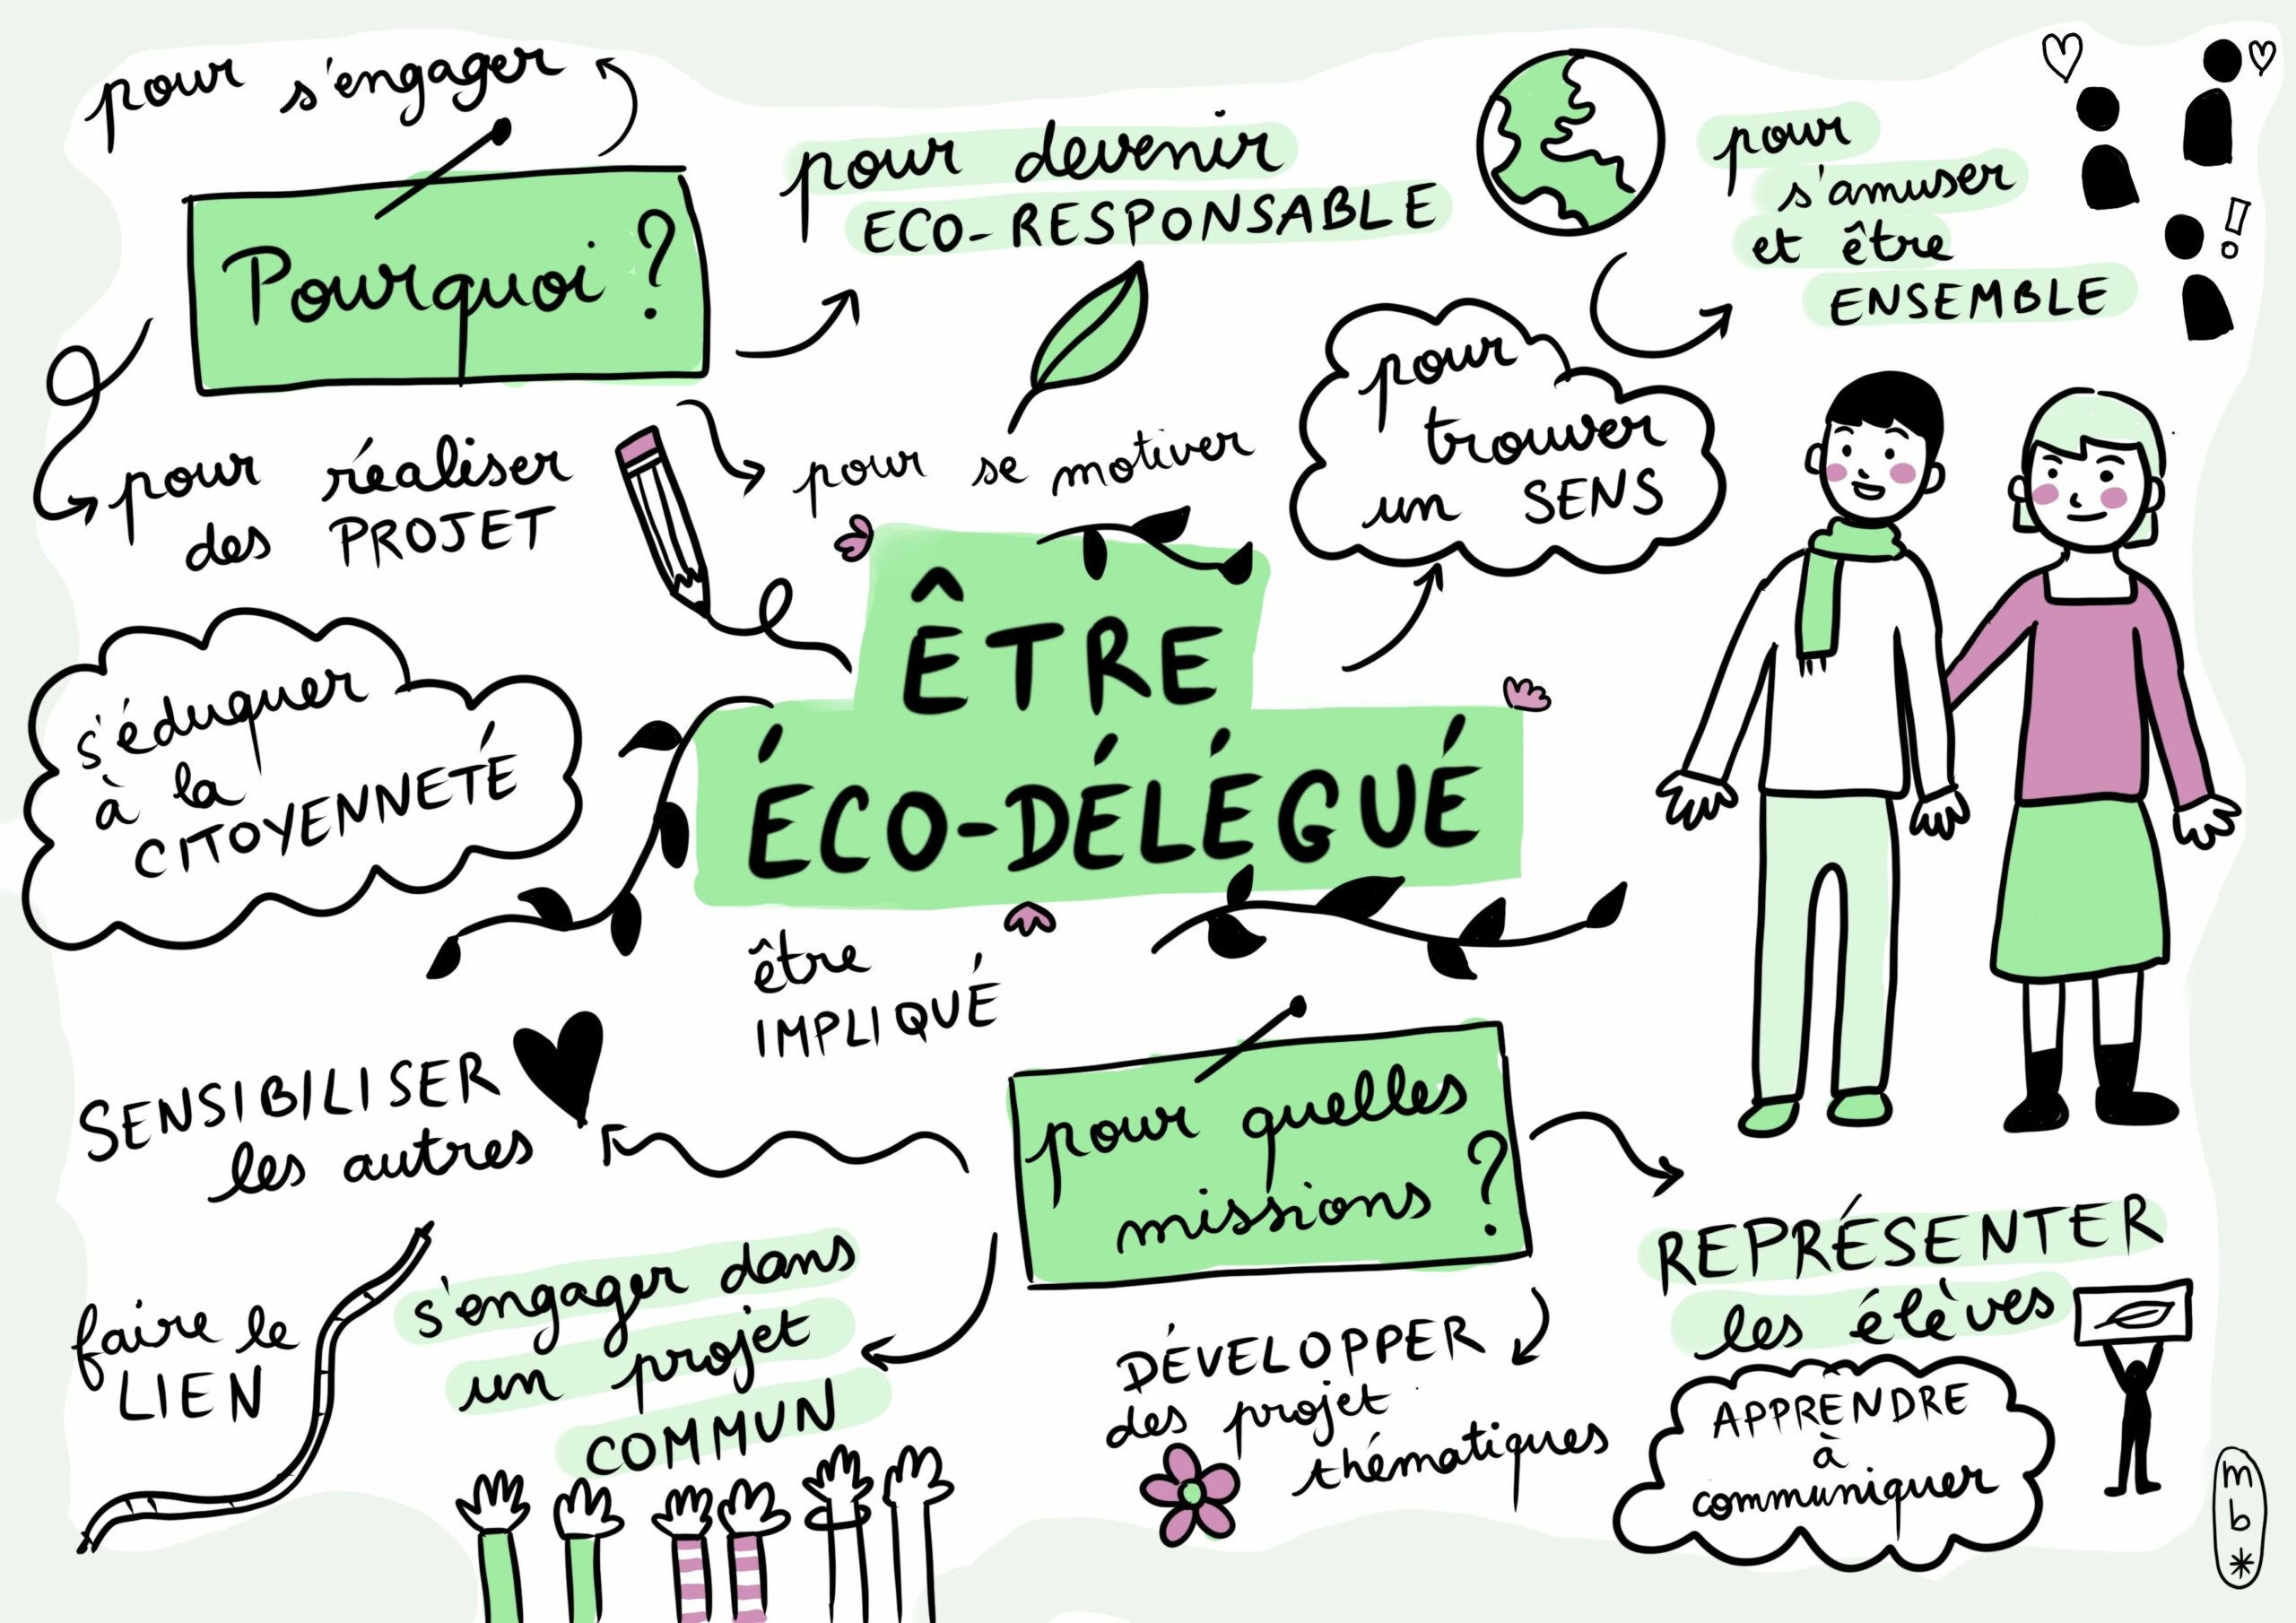 pour s'engager
Pourquoi ?
pour devenir
ECO-RESPONSABLE
pour
s'amuser
et être
ENSEMBLE
pour réaliser
des PROJET
pour se motiver
pour
trouver
un SENS
ÊTRE
ÉCO-DÉLÉGUÉ
s'éduquer
à la
CITOYENNETÉ
être
IMPLIQUÉ
SENSIBILISER
les autres
pour quelles
missions ?
faire le
LIEN
s'engager dans
un projet
COMMUN
DÉVELOPPER
des projet
thématiques
REPRÉSENTER
les élèves
APPRENDRE
à
communiquer
m
b
*